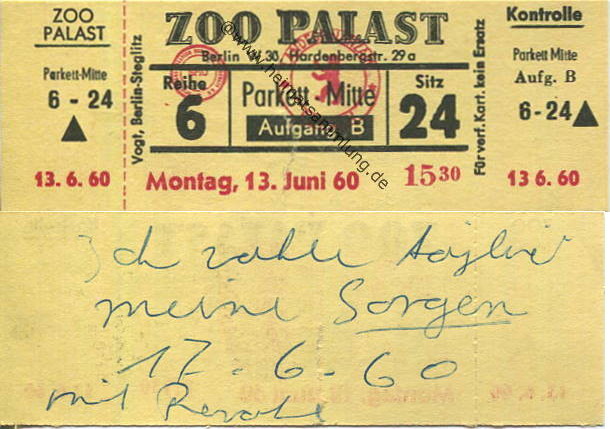 ZOO PALAST
Parkett-Mitte
6 - 24
13. 6. 60
Vogt, Berlin-Steglitz
ZOO PALAST
Berlin W.30, Hardenbergstr. 29a
Reihe
6
Parkett Mitte
Aufgang B
Sitz
24
Montag, 13. Juni 60 15 30
Für verf. Kart. kein Ersatz
Kontrolle
Parkett Mitte
Aufg. B
6-24
13 6. 60
www.heimatsammlung.de
Ich zahle täglich
meine Sorgen
17-6-60
mit